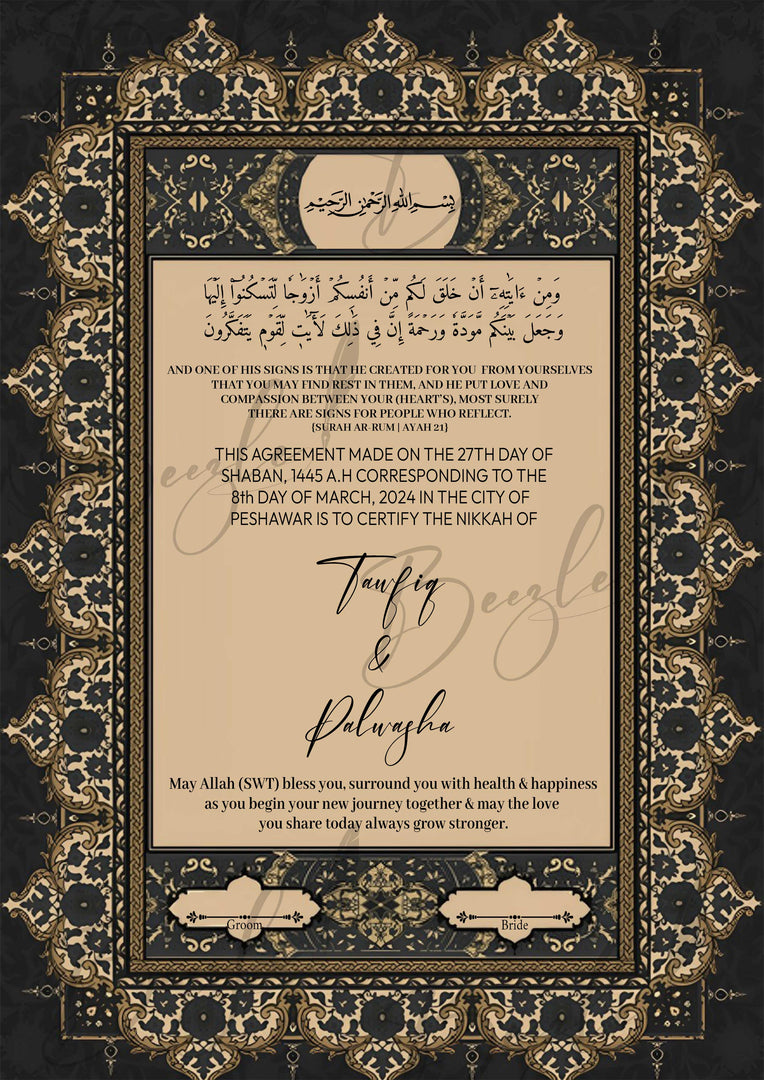 بِسْمِ اللهِ الرَّحْمٰنِ الرَّحِيْمِ
وَمِنْ ءَايَٰتِهِۦٓ أَنْ خَلَقَ لَكُم مِّنْ أَنفُسِكُمْ أَزْوَٰجًا لِّتَسْكُنُوٓا۟ إِلَيْهَا
وَجَعَلَ بَيْنَكُم مَّوَدَّةً وَرَحْمَةً إِنَّ فِي ذَٰلِكَ لَأَيَٰتٍ لِّقَوْمٍ يَتَفَكَّرُونَ
AND ONE OF HIS SIGNS IS THAT HE CREATED FOR YOU FROM YOURSELVES
THAT YOU MAY FIND REST IN THEM, AND HE PUT LOVE AND
COMPASSION BETWEEN YOUR (HEART'S), MOST SURELY
THERE ARE SIGNS FOR PEOPLE WHO REFLECT.
{SURAH AR-RUM | AYAH 21}
THIS AGREEMENT MADE ON THE 27TH DAY OF
SHABAN, 1445 A.H CORRESPONDING TO THE
8th DAY OF MARCH, 2024 IN THE CITY OF
PESHAWAR IS TO CERTIFY THE NIKKAH OF
Tawfiq
&
Palwasha
Beezle
May Allah (SWT) bless you, surround you with health & happiness
as you begin your new journey together & may the love
you share today always grow stronger.
Groom
Bride